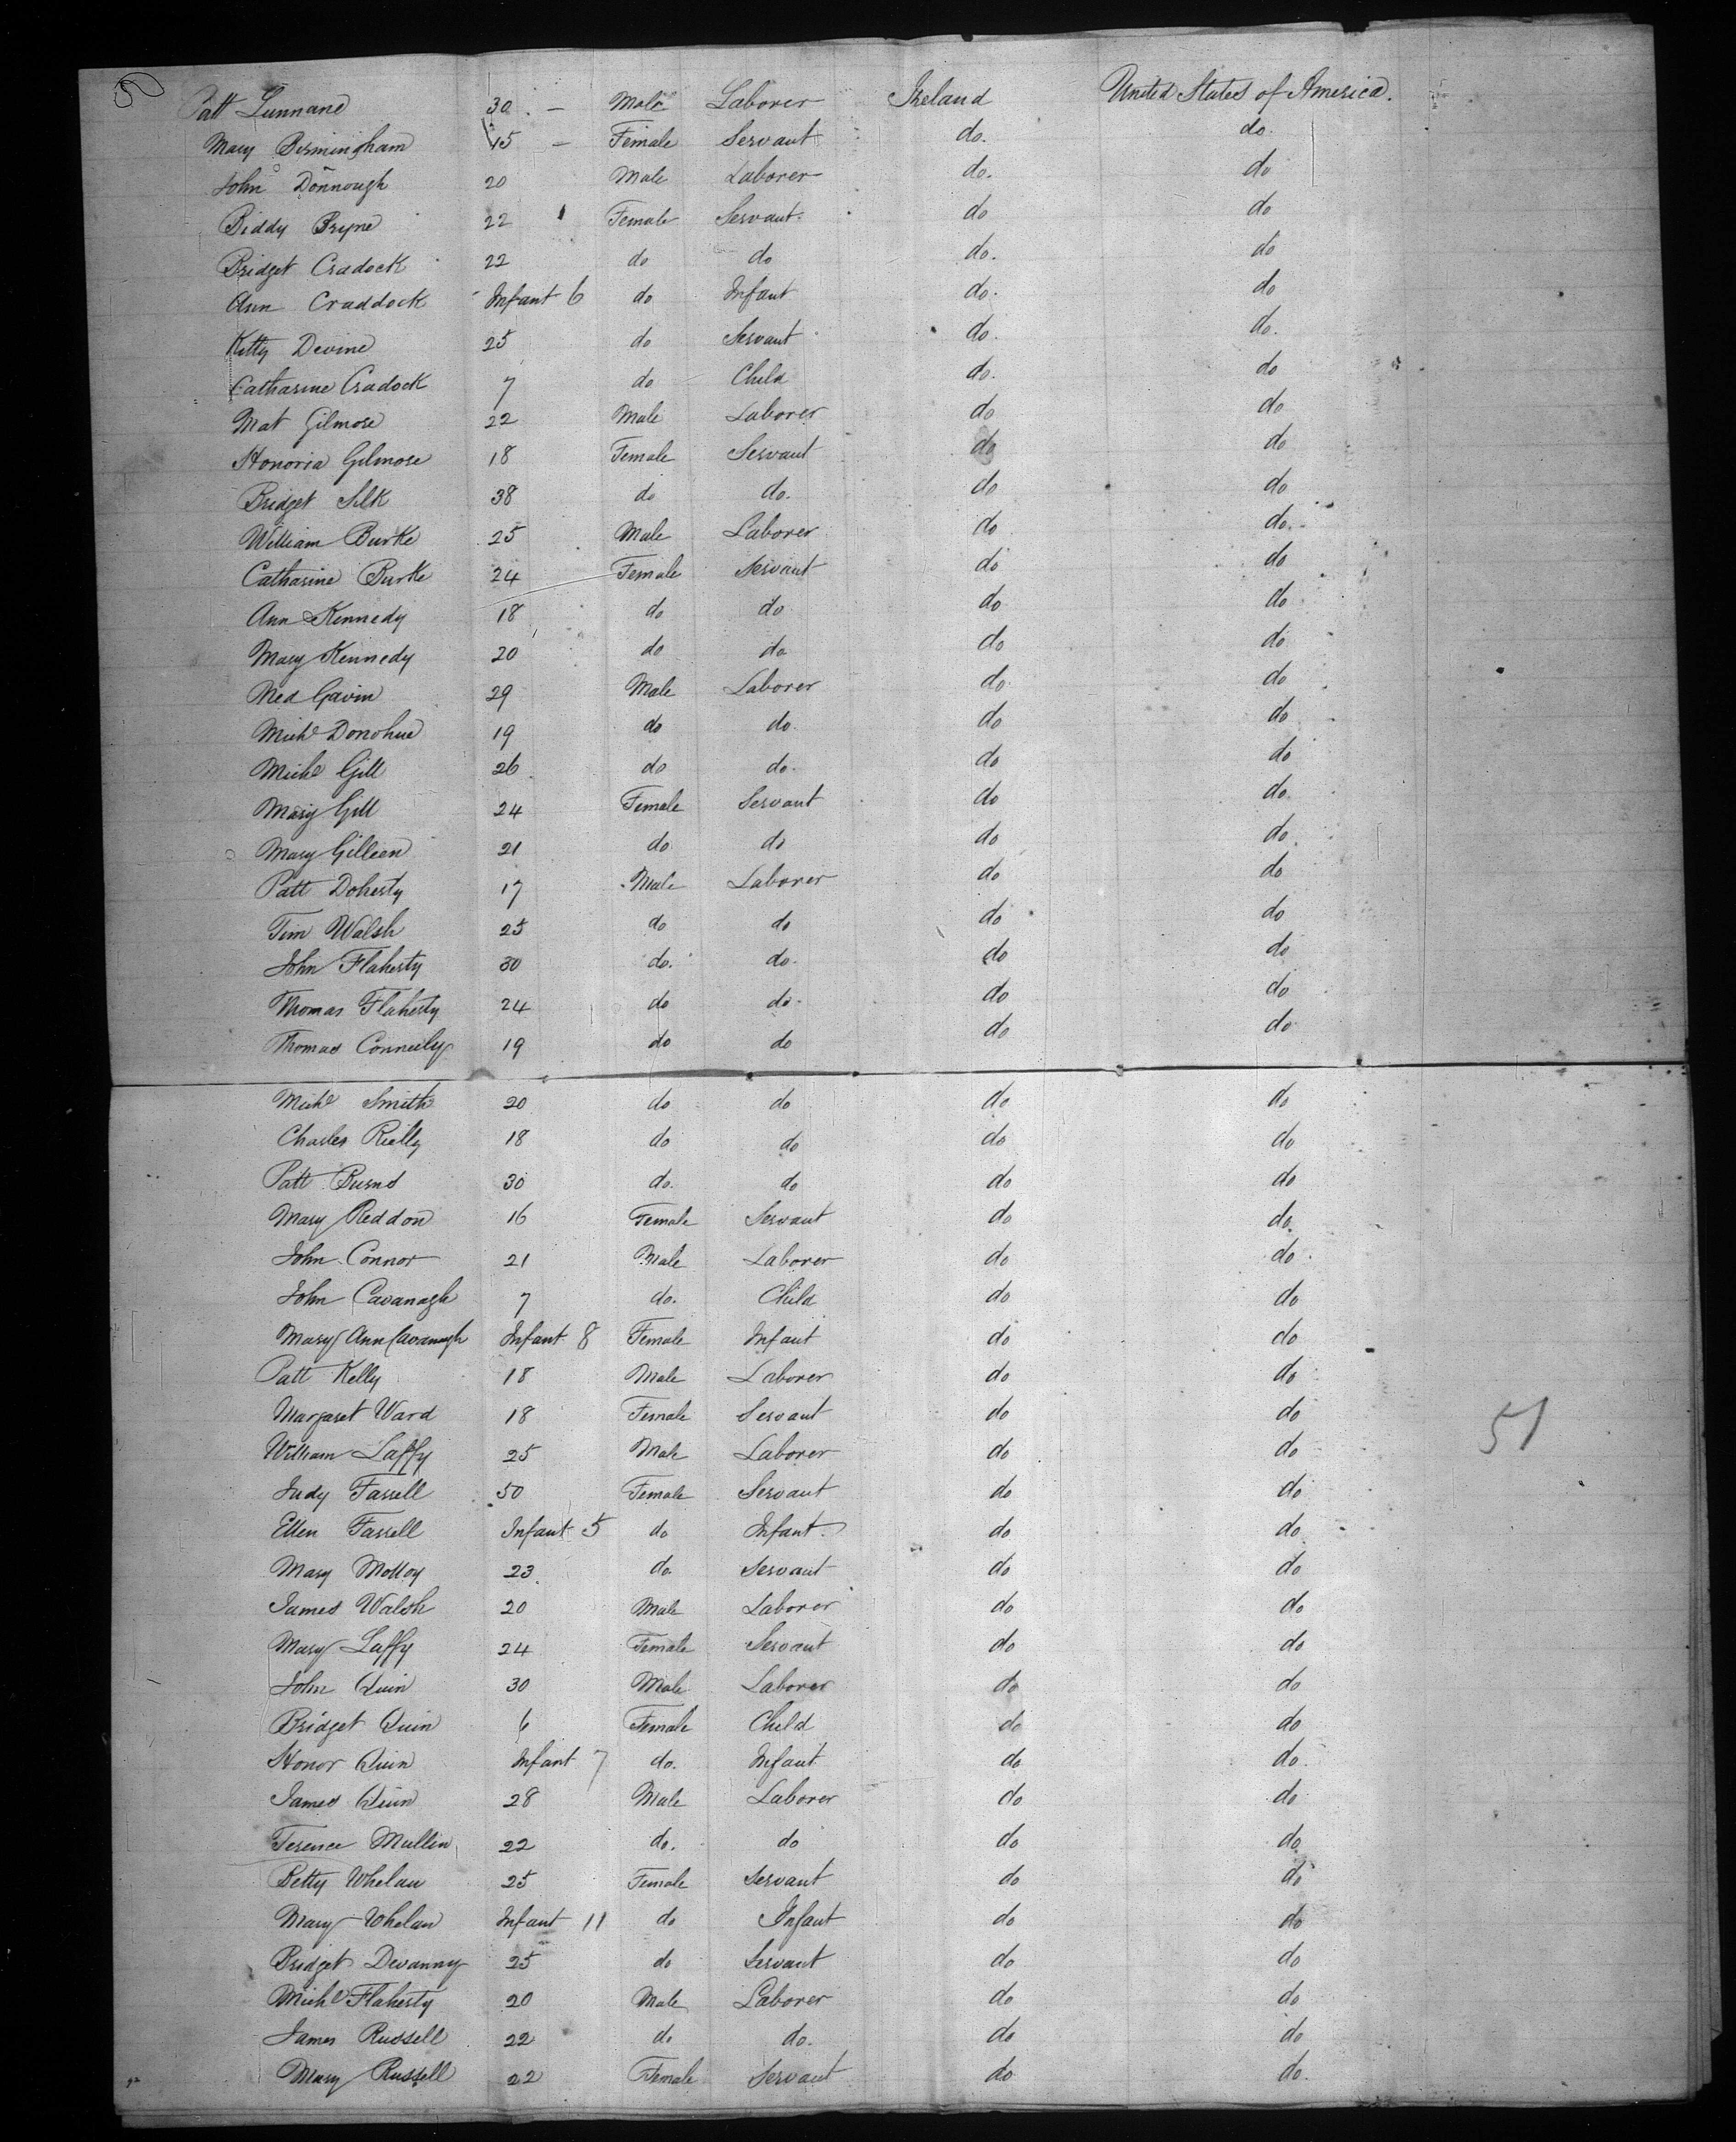 Patt Lunnane 30 - Male Laborer Ireland United States of America.
Mary Birmingham 45 - Female Servant do. do.
John Donnough 20 Male Laborer do. do
Biddy Bryne 22 Female Servant do do
Bridget Cradock 22 do do do. do
Ann Craddock Infant 6 do Infant do. do
Kitty Devine 25 do Servant do. do.
Catharine Cradock 7 do Child do. do
Mat Gilmore 22 Male Laborer do do
Honoria Gilmore 18 Female Servant do do
Bridget Silk 38 do do. do do
William Burke 25 Male Laborer do do.
Catharine Burke 24 Female Servant do do
Ann Kennedy 18 do do do do
Mary Kennedy 20 do do do do
Ned Gavin 29 Male Laborer do do
Michl Donohue 19 do do. do do
Michl Gill 26 do do. do do
Mary Gill 24 Female Servant do do
Mary Gilleen 21 do do do do
Patt Doherty 17 Male Laborer do do
Tim Walsh 25 do do do do
John Flaherty 30 do. do. do do
Thomas Flaherty 24 do do. do do
Thomas Conneely 19 do do do do
Michl Smith 20 do do do do
Charles Rielly 18 do do do do
Patt Burns 30 do. do do do
Mary Reddon 16 Female Servant do do.
John Connor 21 Male Laborer do do.
John Cavanagh 7 do. Child do do
Mary Ann Cavanagh Infant 8 Female Infant do do
Patt Kelly 18 Male Laborer do do
Margaret Ward 18 Female Servant do do
51
William Laffy 25 Male Laborer do do
Judy Farrell 50 Female Servant do do
Ellen Farrell Infant 5 do Infant do do
Mary Molloy 23 do. Servant do do
James Walsh 20 Male Laborer do do
Mary Laffy 24 Female Servant do do
John Quin 30 Male Laborer do do
Bridget Quin 6 Female Child do do
Honor Quin Infant 7 do. Infant do do.
James Quin 28 Male Laborer do do
Terence Mullin 22 do. do do do
Betty Whelan 25 Female Servant do do
Mary Whelan Infant 11 do Infant do do
Bridget Devanny 25 do Servant do do
Michl Flaherty 20 Male Laborer do do
James Russell 22 do do. do do
Mary Russell 22 Female Servant do do.